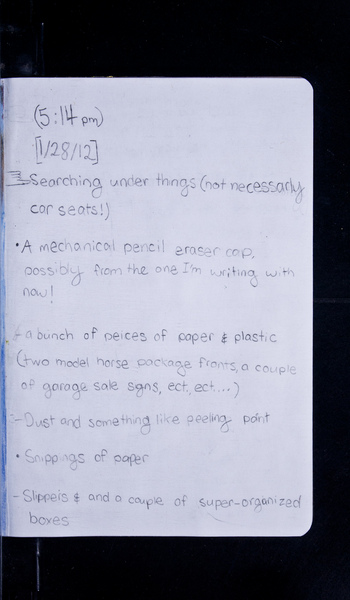 (5:14 pm)
[1/28/12]
Searching under things (not necessarly
car seats!)
• A mechanical pencil eraser cap,
possibly from the one I'm writing with
now!
- a bunch of peices of paper & plastic
(two model horse package fronts, a couple
of garage sale signs, ect, ect...)
- Dust and something like peeling paint
• Snippings of paper
- Slippers & and a couple of super-organized
boxes